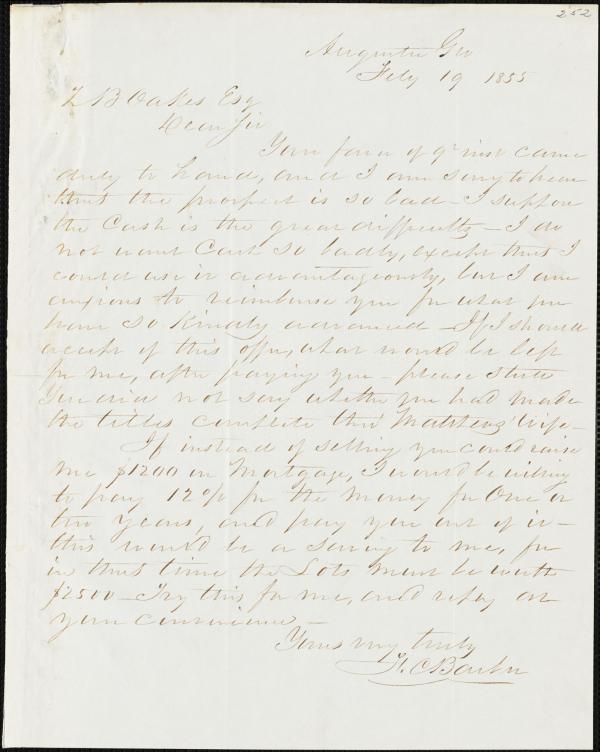 252
Augusta Geo
Feby 19 1855
Z B Oakes Esq
Dear Sir
Your favor of 9th inst came
duly to hand, and I am sorry to hear
that the prospect is so bad - I suppose
the Cash is the great difficulty - I do
not want Cash so badly, except that I
could use it advantageously, but I am
anxious to reimburse you for what you
have so kindly advanced - If I should
accept of this offer, what would be left
for me, after paying you - please state
You did not say whether you had made
the titles complete thro' Matthews' Wife -
If instead of selling you could raise
me $1200 on Mortgage, I would be willing
to pay 12% for the money for One or
two years, and pay you out of it -
this would be a saving to me, for
in that time the Lots must be worth
$2500 - Try this for me, and reply at
your convenience -
Yours very truly
C Barber